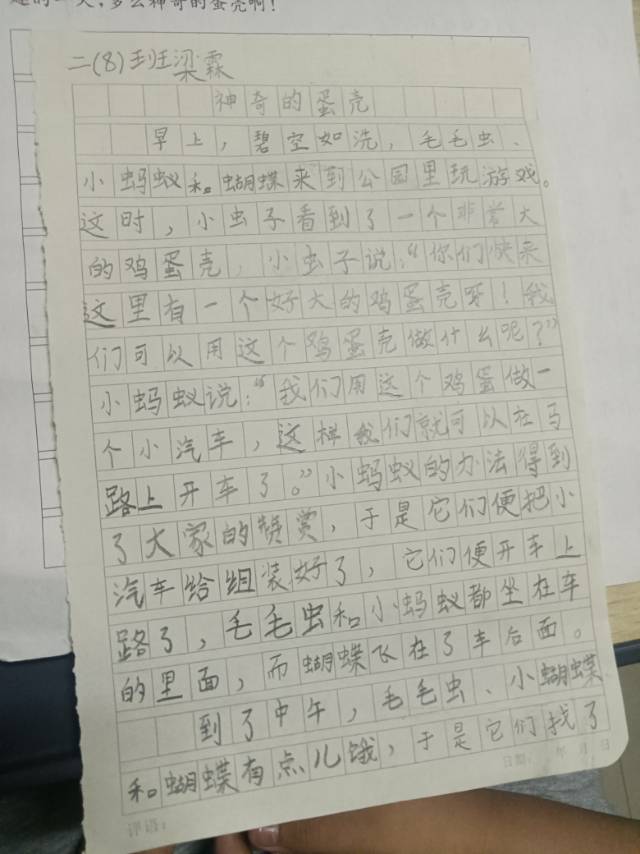 二(8)班梁霖
神奇的蛋壳
早上，碧空如洗，毛毛虫、
小蚂蚁和蝴蝶来到公园里玩游戏。
这时，小虫子看到了一个非常大
的鸡蛋壳，小虫子说：“你们快来
这里有一个好大的鸡蛋壳呀！我
们可以用这个鸡蛋壳做什么呢？”
小蚂蚁说：“我们用这个鸡蛋做一
个小汽车，这样我们就可以在马
路上开车了。”小蚂蚁的办法得到
了大家的赞赏，于是它们便把小
汽车给组装好了，它们便开车上
路了，毛毛虫和小蚂蚁都坐在车
的里面，而蝴蝶飞在了车后面。
到了中午，毛毛虫、小蝴蝶
和蝴蝶有点儿饿，于是它们找了
日期： 年 月 日
评语：